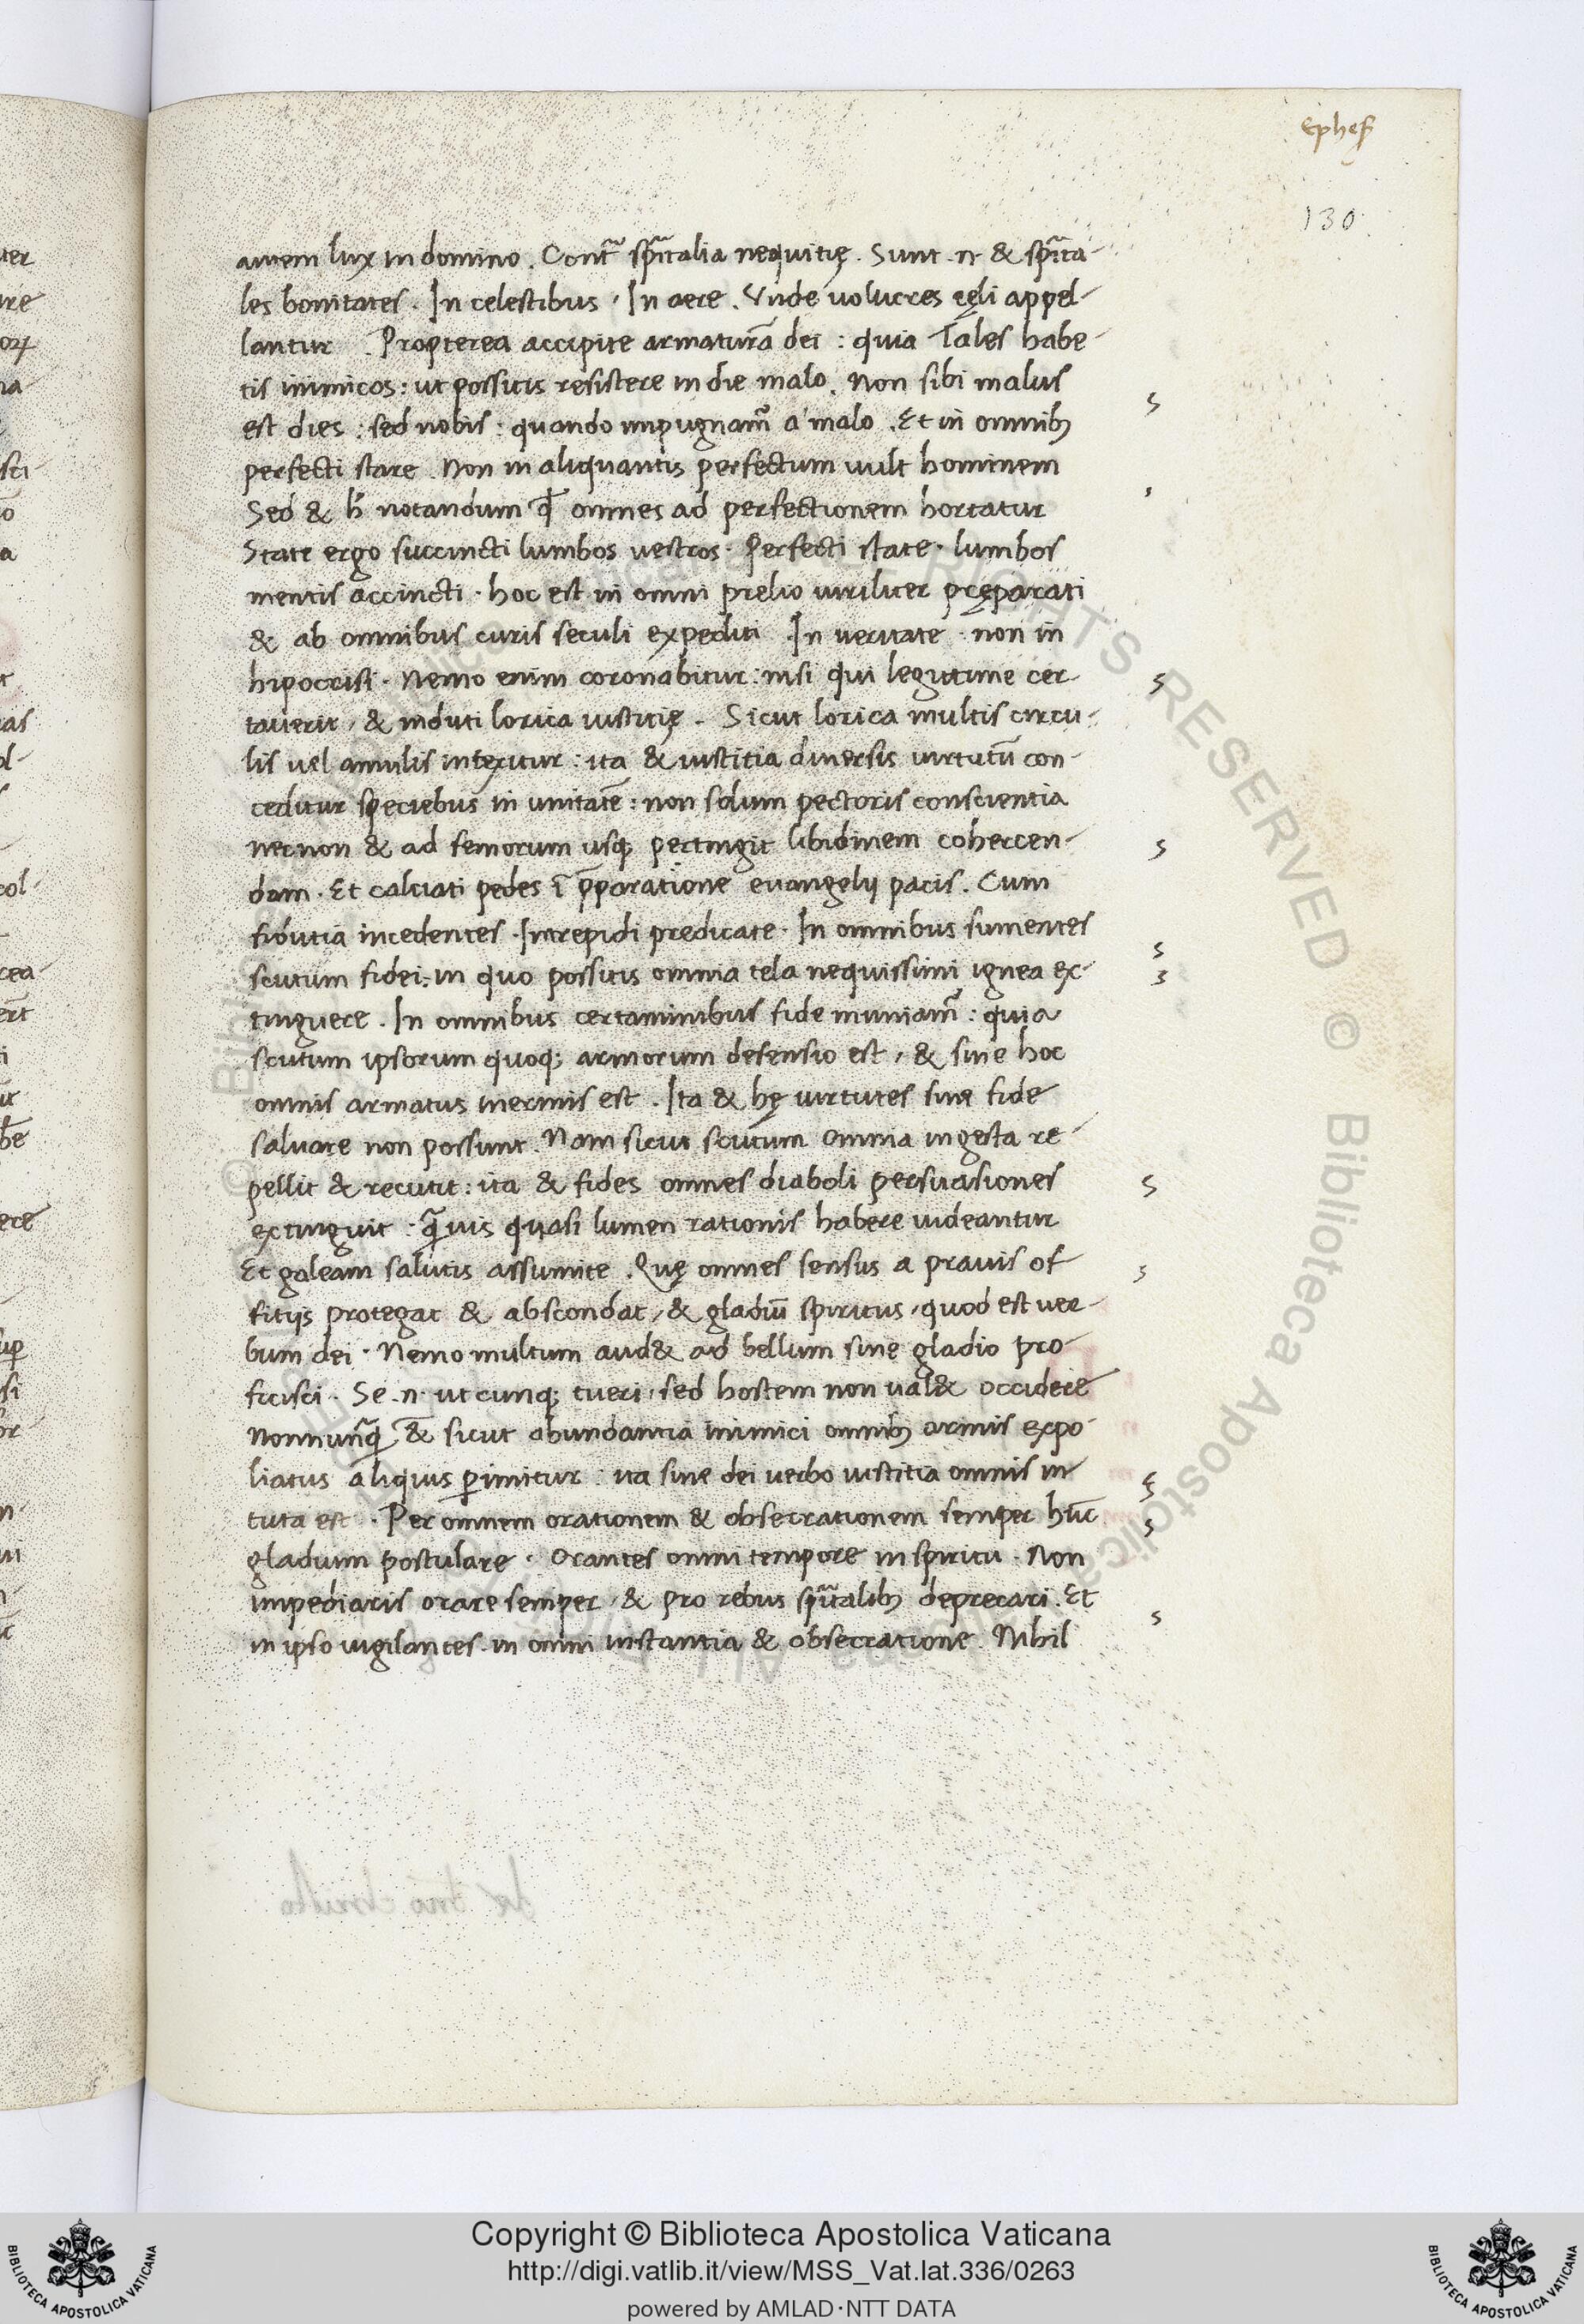 Ephes̄
130
autem lux in domino. Cont̄ sp̄italia nequitię. Sunt .n. & sp̄ita-
les bonitates. In celestibus. In aere. Vnde uolucres cęli appel-
lantur. Propterea accipite armaturā dei: quia tales habe-
tis inimicos: ut possitis resistere in die malo. Non sibi malus
est dies: sed nobis: quando impugnam̄ a malo. Et in omnibꝫ
perfecti stare. Non in aliquantis perfectum uult hominem
Sed & h̄ notandum ꝙ omnes ad perfectionem hortatur
State ergo succincti lumbos uestros. Perfecti state. lumbos
mentis accincti. hoc est in omni prelio uiriliter pręparati
& ab omnibus curis seculi expediti. In ueritate. non in
hipocrisi. Nemo enim coronabitur: nisi qui legitime cer-
tauerit, & induti lorica iustitię. Sicut lorica multis circu-
lis uel annulis intexitur: ita & iustitia diuersis uirtutū con-
ceditur speciebus in unitatē: non solum pectoris conscientia
necnon & ad femorum usqꝫ pertingit libidinem cohercen-
dam. Et calciati pedes ī p̄paratione euangelij pacis. Cum
fidutia incedentes. Intrepidi predicate. In omnibus sumentes
scutum fidei: in quo possitis omnia tela nequissimi ignea ex-
tinguere. In omnibus certaminibus fide muniam̄: quia
scutum ipsorum quoqꝫ armorum defensio est, & sine hoc
omnis armatus inermis est. Ita & hę uirtutes sine fide
saluare non possunt. Nam sicut scutum omnia ingesta re-
pellit & recutit: ita & fides omnes diaboli persuasiones
extinguit. q̄uis quasi lumen rationis habere uideantur
Et galeam salutis assumite. Quę omnes sensus a prauis of
fitijs protegat & abscondat, & gladiū spiritus, quod est uer-
bum dei. Nemo multum aud& ad bellum sine gladio pro-
ficisci. Se .n. utcunqꝫ tueri, sed hostem non ual& occidere
Nonnunq̄ & sicut abundantia inimici omnibꝫ armis expo-
liatus aliquis ꝑimitur: ita sine dei uerbo iustitia omnis in
tuta est. Per omnem orationem & obsecrationem semper hūc
gladium postulare. Orantes omni tempore in spiritu. Non
impediaris orare semper, & pro rebus sp̄italibꝫ deprecari. Et
in ipso uigilantes. in omni instantia & obsecratione. Nihil
Copyright © Biblioteca Apostolica Vaticana
http://digi.vatlib.it/view/MSS_Vat.lat.336/0263
powered by AMLAD·NTT DATA